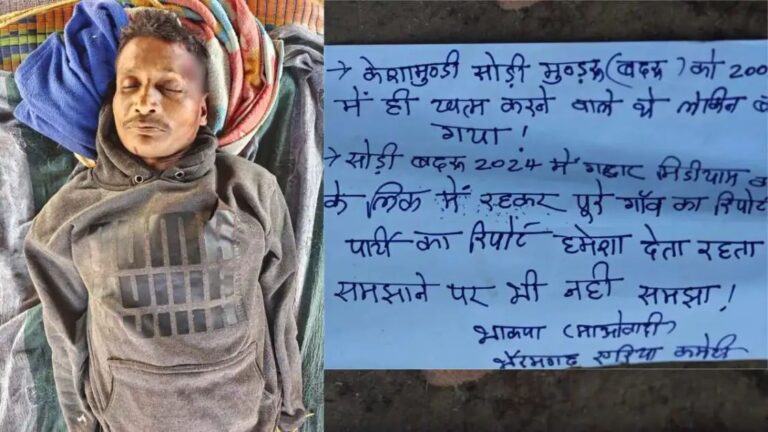 → केशामुण्डी सोड़ी मुण्ड्रू (बदरू) को 200
में ही खत्म करने वाले थे लेकिन
गया!
→ सोड़ी बदरू 2024 में गद्दार मिडीयाम
के लिंक में रहकर पूरे गाँव का रिपोर्ट
पार्टी का रिपोर्ट हमेशा देता रहता
समझाने पर भी नहीं समझा!
भाकपा (माओवादी)
भैरमगढ़ एरिया कमेटी